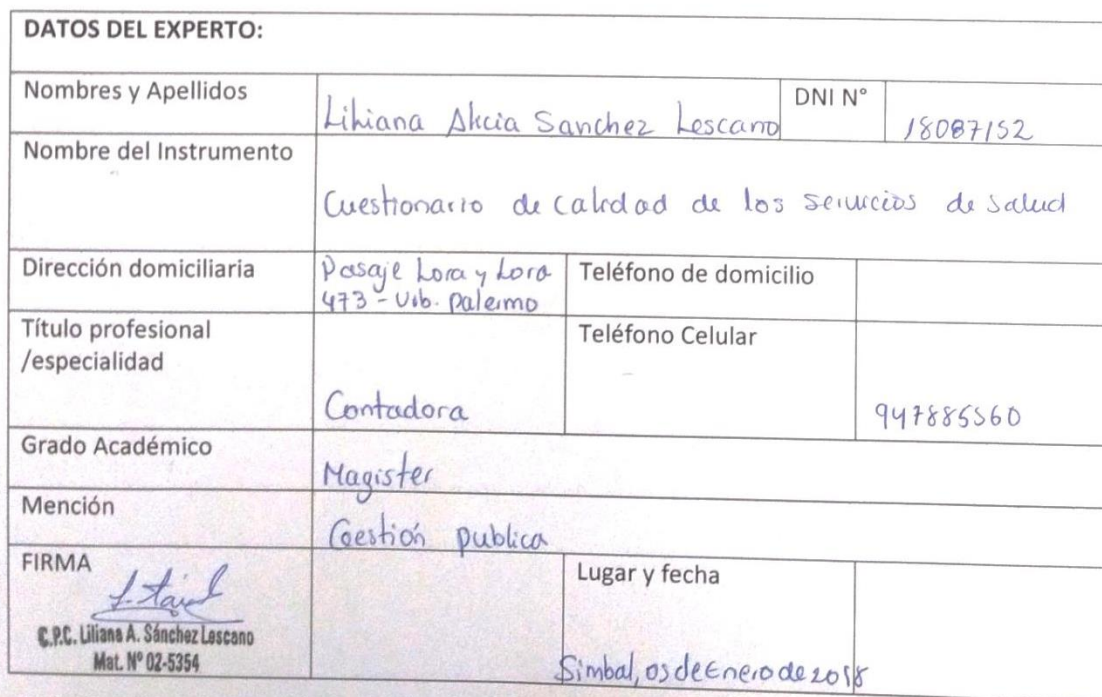 DATOS DEL EXPERTO:
Nombres y Apellidos
Liliana Alicia Sanchez Lescano
DNI N°
18087152
Nombre del Instrumento
Cuestionario de calidad de los servicios de salud
Dirección domiciliaria
Pasaje Lora y Lora
473 - Urb. Palermo
Teléfono de domicilio
Título profesional
/especialidad
Contadora
Teléfono Celular
947885560
Grado Académico
Magister
Mención
Gestión publica
FIRMA
C.P.C. Liliana A. Sánchez Lescano
Mat. N° 02-5354
Lugar y fecha
Simbal, 05 de Enero de 2018